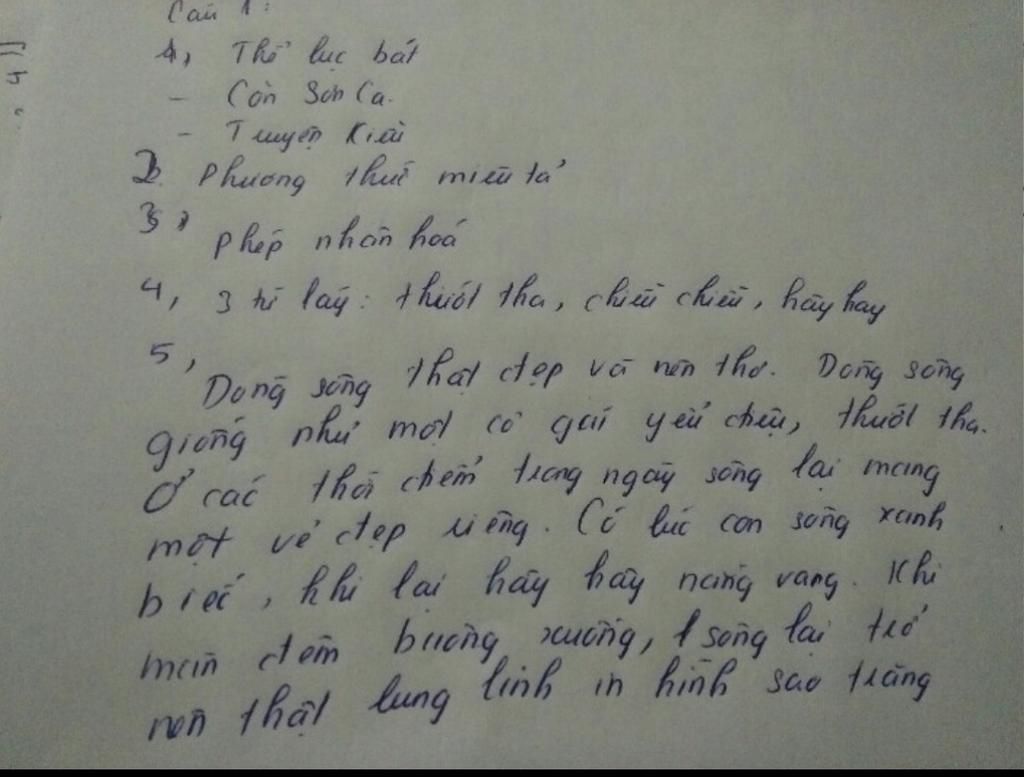 Câu 1:
1, Thể lục bát
- Còn Sơn Ca.
- Truyện Kiều
2. Phương thức miêu tả
3, Phép nhân hoá
4, 3 từ láy: thướt tha, chiều chiều, hây hây
5, Dòng sông thật đẹp và nên thơ. Dòng sông
giống như một cô gái yểu điệu, thướt tha.
Ở các thời điểm trong ngày sông lại mang
một vẻ đẹp riêng. Có lúc con sông xanh
biếc, khi lại hây hây nắng vàng. Khi
màn đêm buông xuống, sông lại trở
nên thật lung linh in hình sao trăng